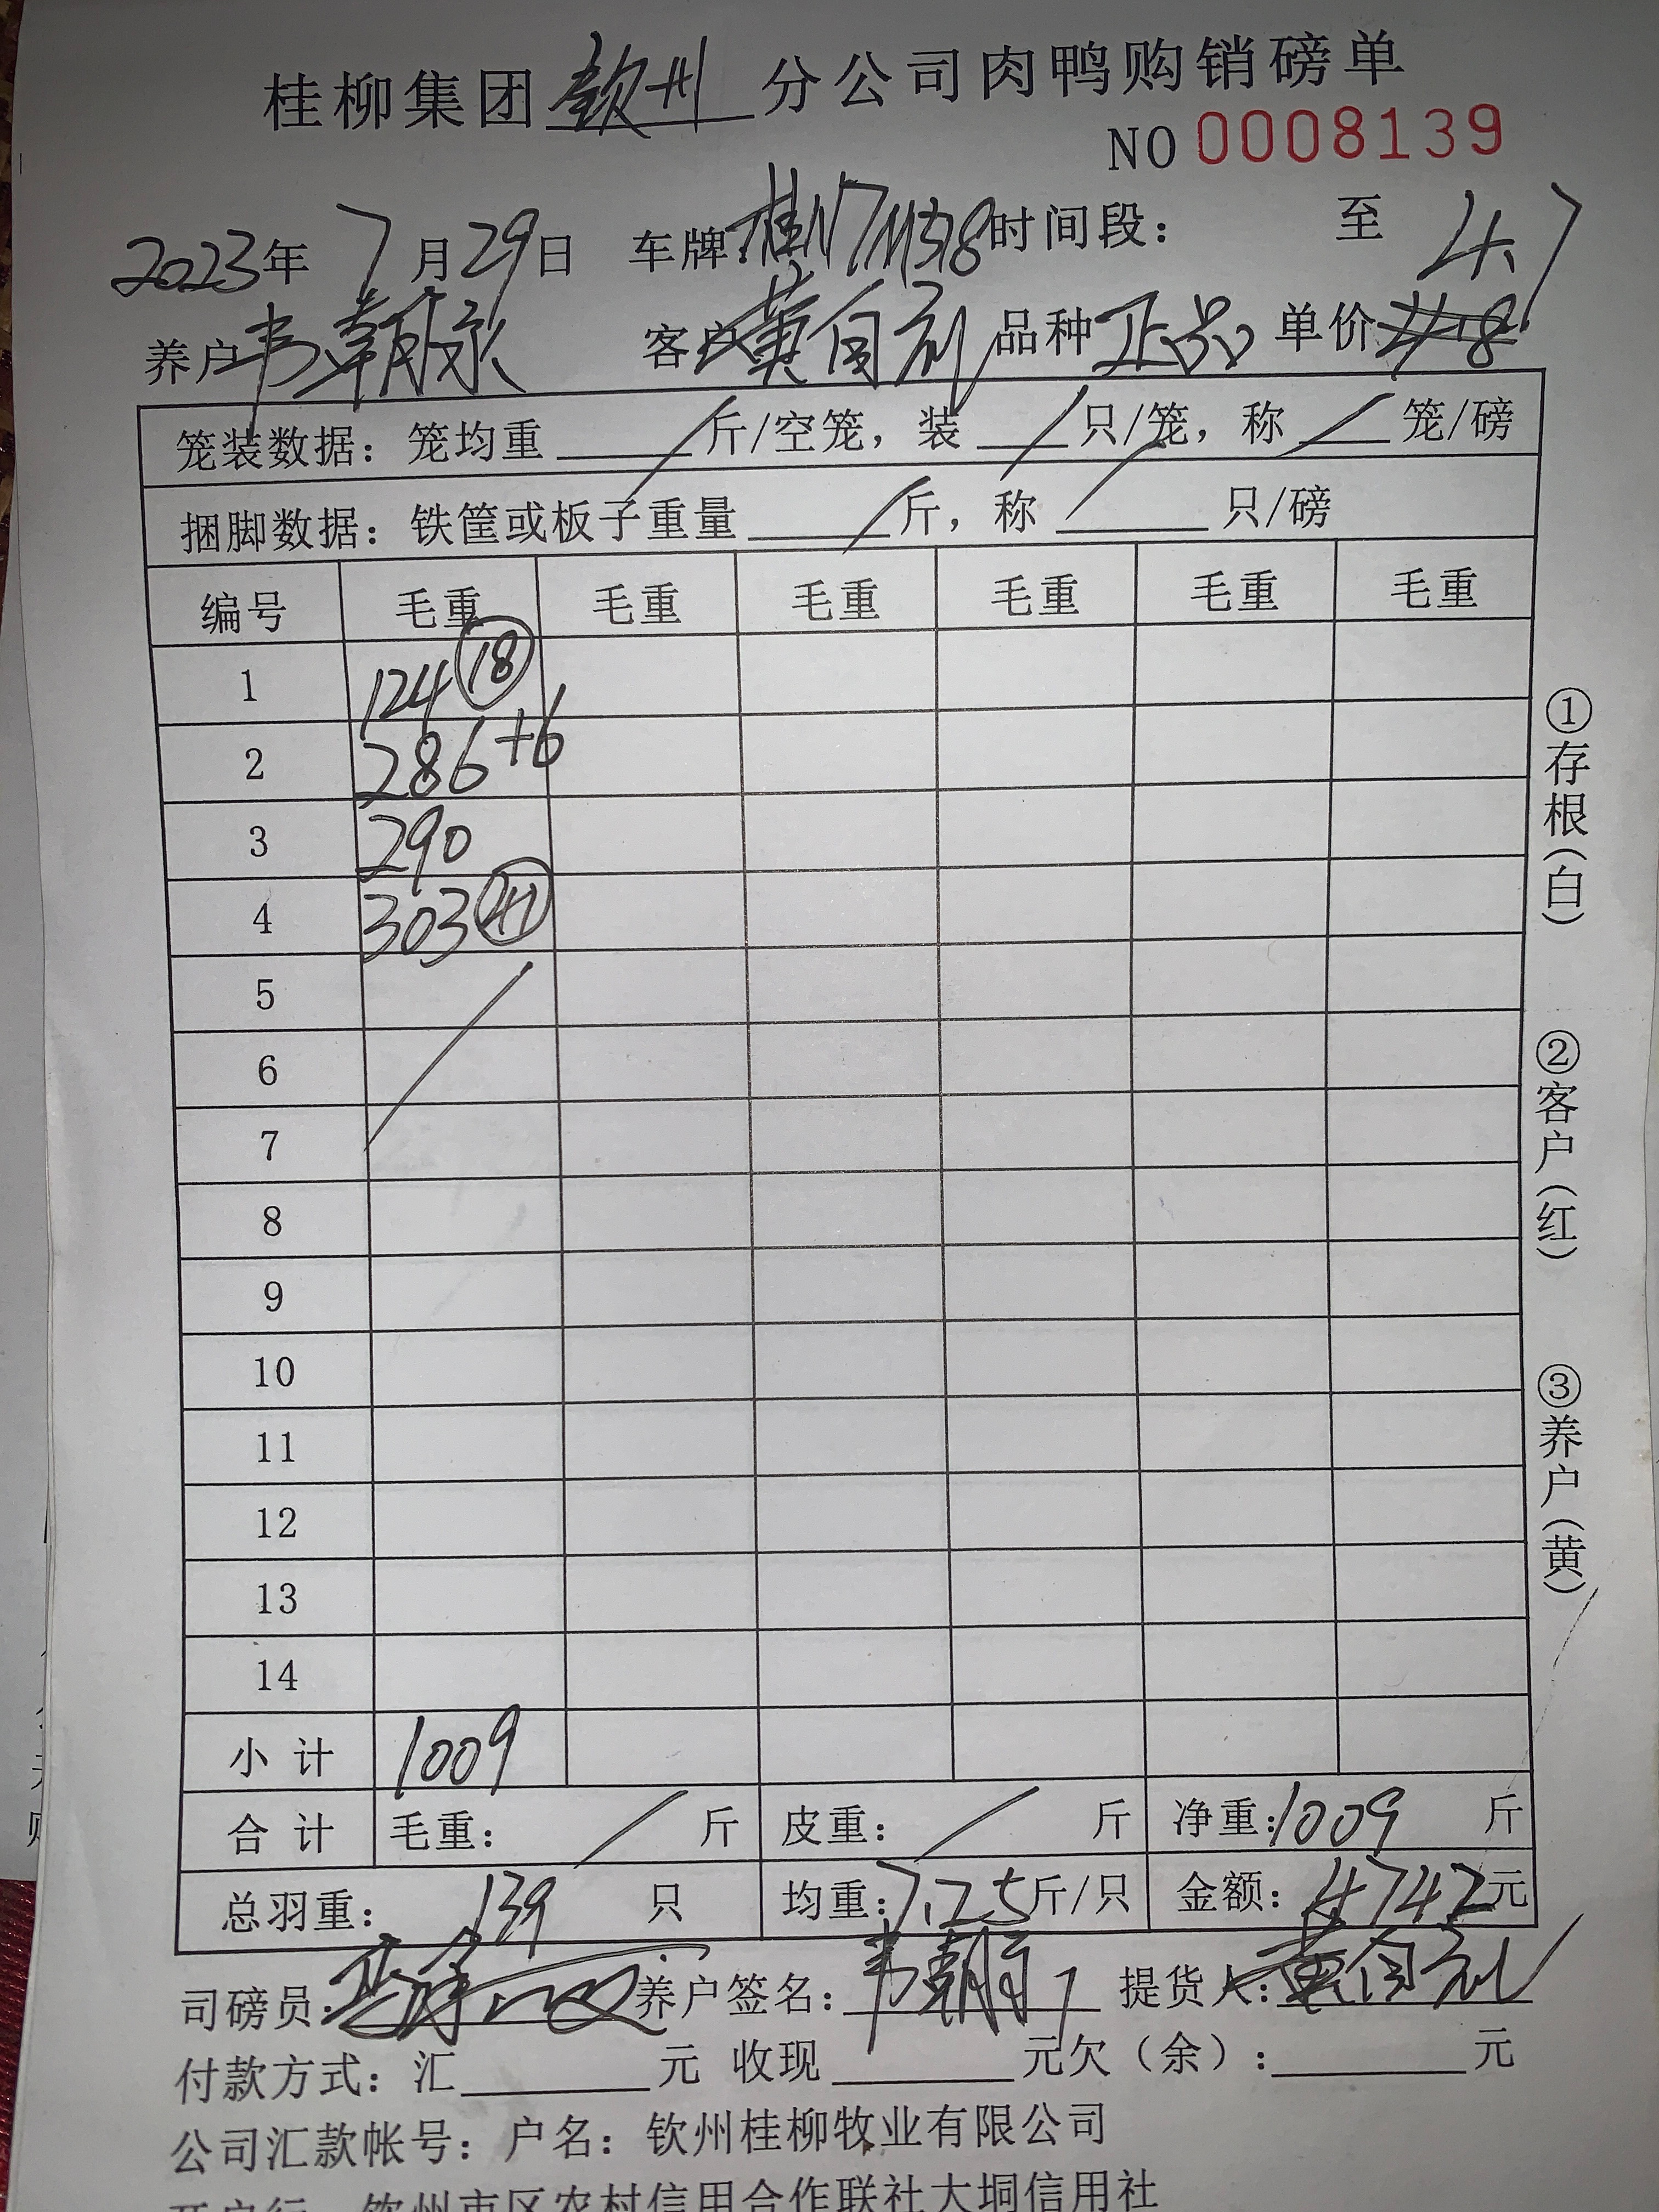 桂柳集团钦州分公司肉鸭购销磅单
NO 0008139
2023年7月29日 车牌:桂N7M318 时间段: 至 4.7
养户 韦朝 客户 黄自礼 品种 正品 单价
笼装数据:笼均重 / 斤/空笼,装 / 只/笼,称 / 笼/磅
捆脚数据:铁筐或板子重量 / 斤,称 / 只/磅
编号 毛重 毛重 毛重 毛重 毛重 毛重
1 124 18
2 286+6
3 290
4 303 41
5
6
7
8
9
10
11
12
13
14
小计 1009
合计 毛重: / 斤 皮重: / 斤 净重:1009 斤
总羽重: 139 只 均重:7.25斤/只 金额:4742元
司磅员: 养户签名:韦朝 提货人:黄自礼
付款方式:汇 元 收现 元欠(余): 元
公司汇款帐号:户名:钦州桂柳牧业有限公司
开户行 钦州市区农村信用合作联社大垌信用社
①存根(白)
②客户(红)
③养户(黄)